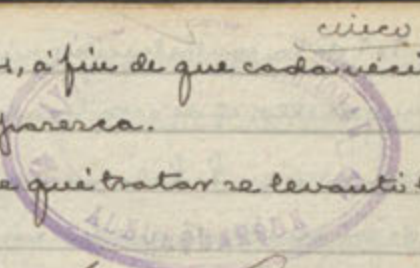 cinco
, á fin de que cada veci
parezca.
e qué tratar se levantó
ALBURQUERQUE